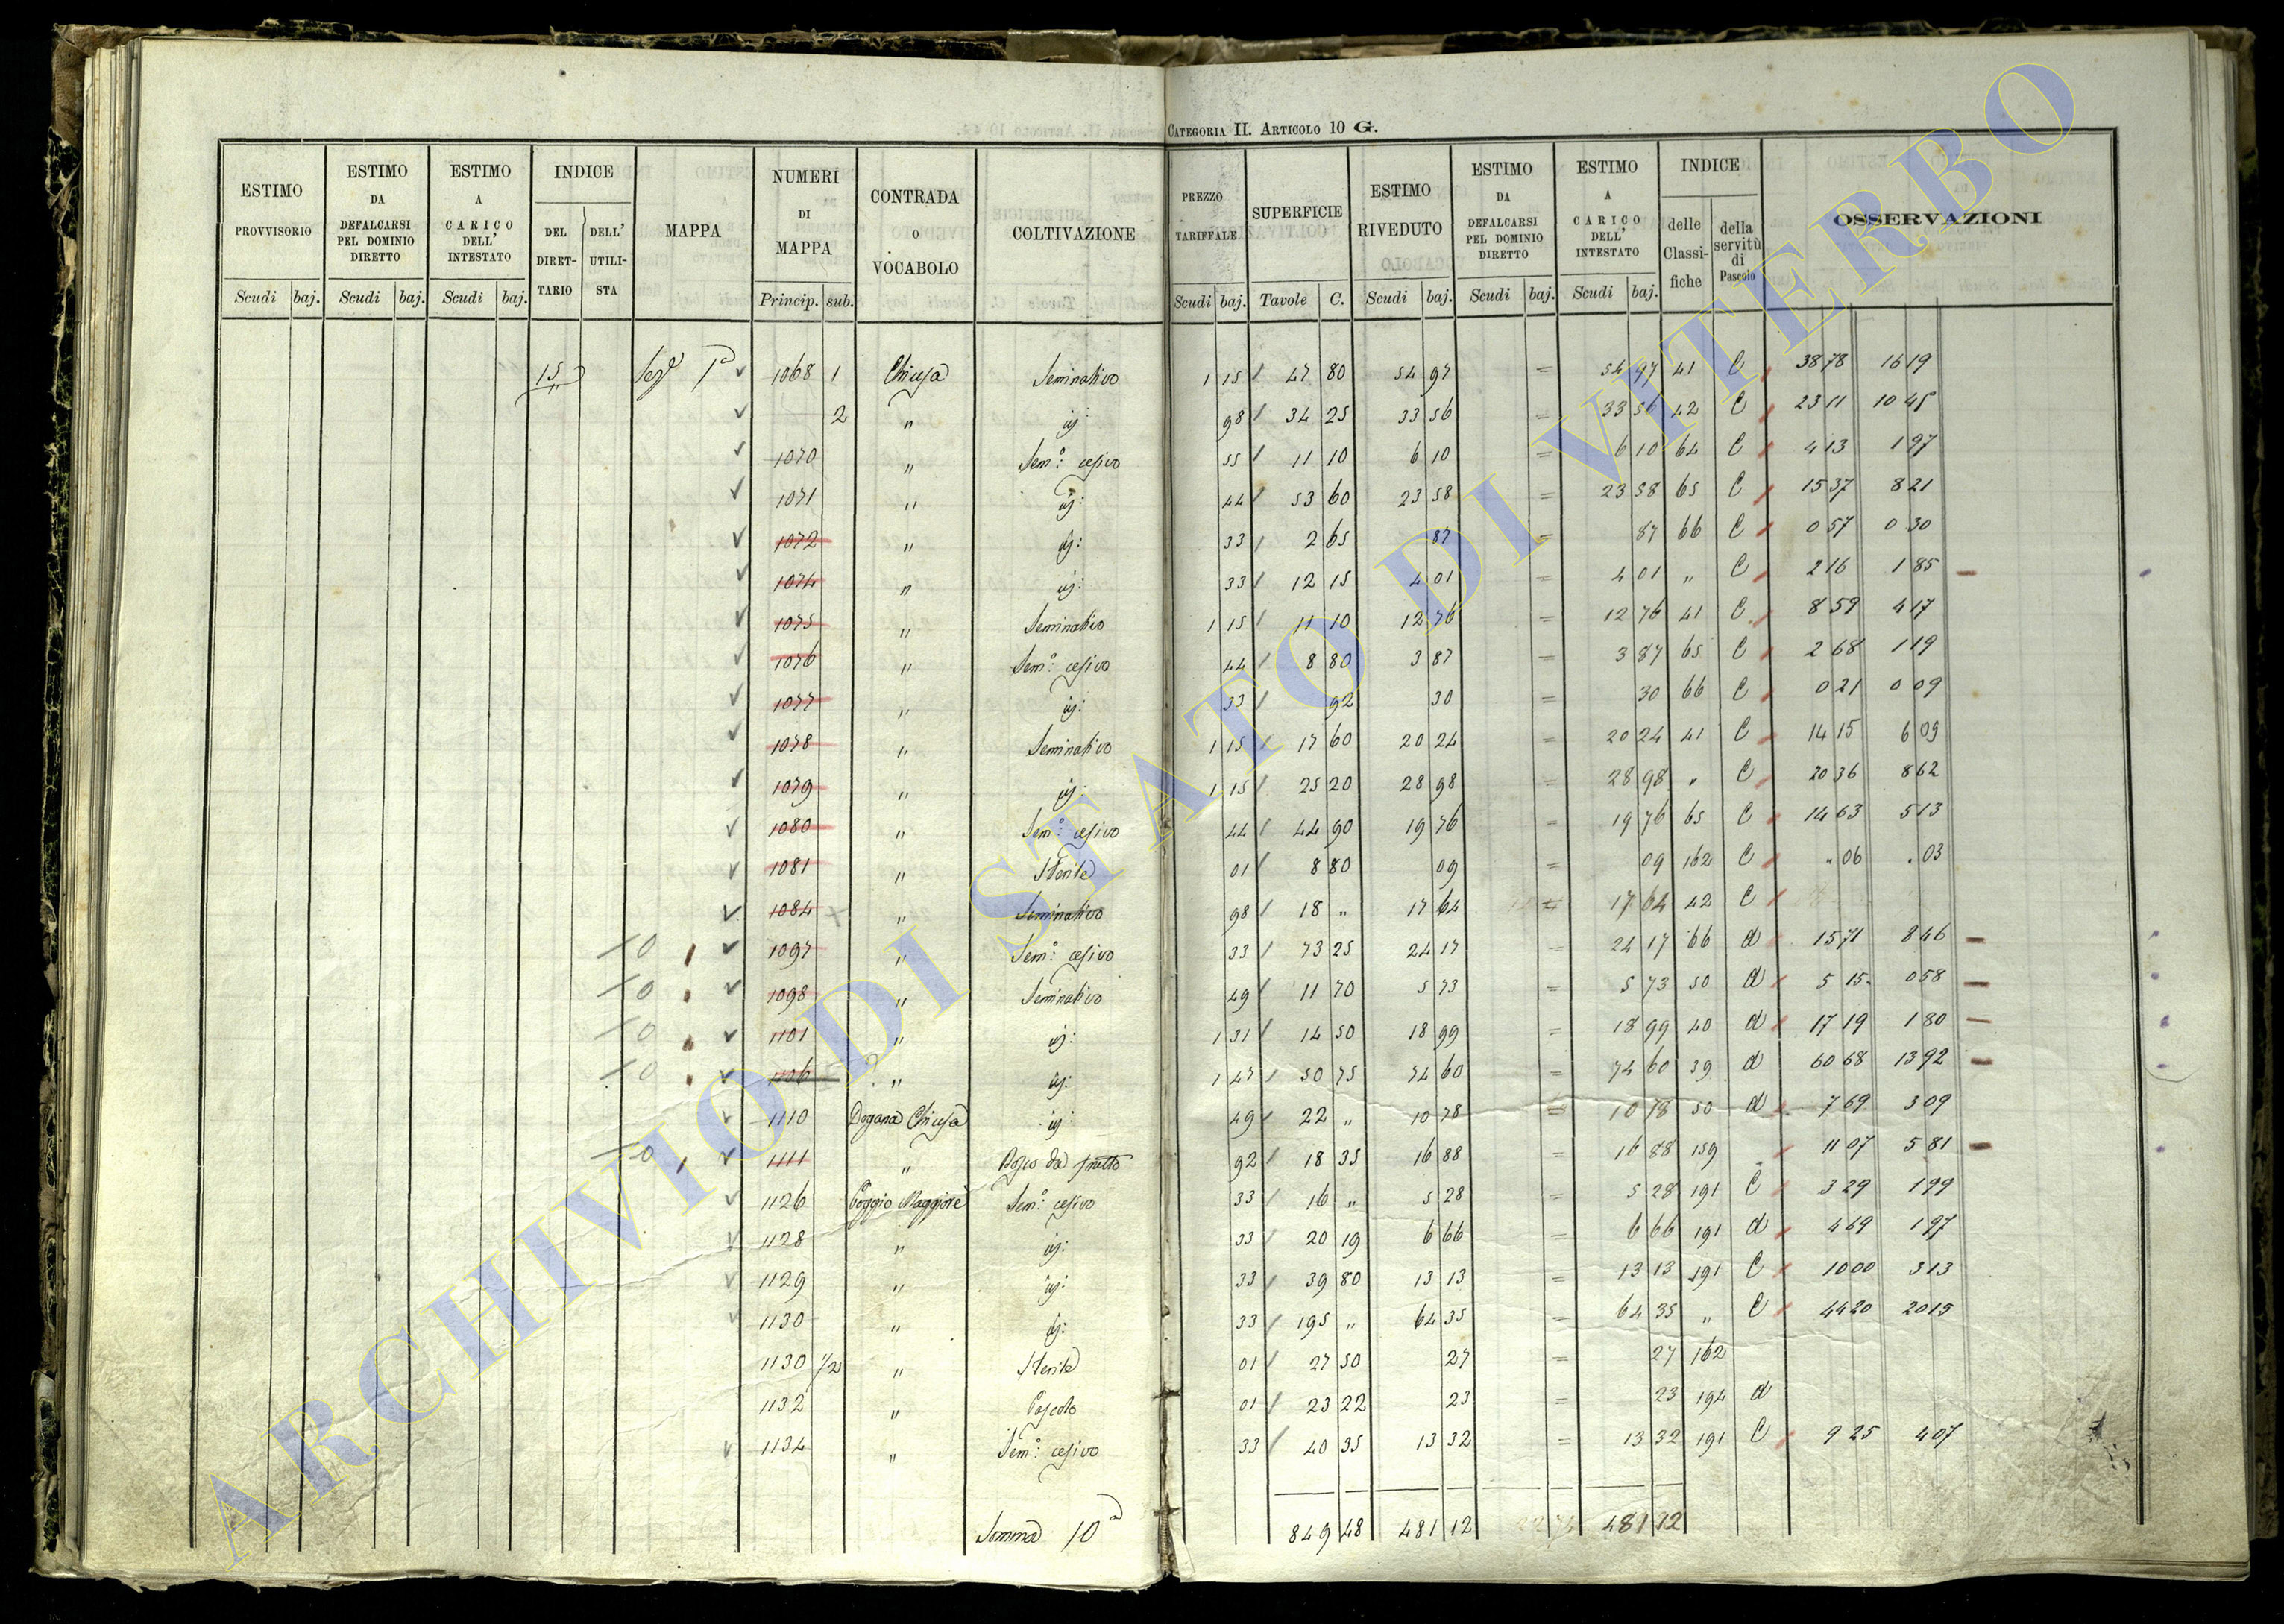 CATEGORIA II. ARTICOLO 10 G.
ESTIMO PROVVISORIO | ESTIMO DA DEFALCARSI PEL DOMINIO DIRETTO | ESTIMO A CARICO DELL' INTESTATO | INDICE DEL DIRETTARIO | DELL' UTILISTA | MAPPA | NUMERI DI MAPPA | CONTRADA O VOCABOLO | COLTIVAZIONE | PREZZO TARIFFALE | SUPERFICIE | ESTIMO RIVEDUTO | ESTIMO DA DEFALCARSI PEL DOMINIO DIRETTO | ESTIMO A CARICO DELL' INTESTATO | INDICE delle Classifiche | della servitù di Pascolo | OSSERVAZIONI
Scudi baj. | Scudi baj. | Scudi baj. | Princip. sub. | Scudi baj. | Tavole C. | Scudi baj. | Scudi baj. | Scudi baj.
15 Sez.e 1a 1068 1 Chiusa Seminativo 1 15 47 80 54 97 = 54 97 41 C 38 78 16 19
2 " id: 98 34 25 33 56 = 33 56 42 C 23 11 10 45
1070 " Sem.o cesivo 55 11 10 6 10 = 6 10 64 C 4 13 1 97
1071 " id: 44 53 60 23 58 = 23 58 65 C 15 37 8 21
1072 " id: 33 2 65 87 = 87 66 C 0 57 0 30
1074 " id: 33 12 15 4 01 = 4 01 " C 2 16 1 85
1075 " Seminativo 1 15 11 10 12 76 = 12 76 41 C 8 59 4 17
1076 " Sem.o cesivo 44 8 80 3 87 = 3 87 65 C 2 68 1 19
1077 " id: 33 92 30 = 30 66 C 0 21 0 09
1078 " Seminativo 1 15 17 60 20 24 = 20 24 41 C 14 15 6 09
1079 " id: 1 15 25 20 28 98 = 28 98 " C 20 36 8 62
1080 " Sem.o cesivo 44 44 90 19 76 = 19 76 65 C 14 63 5 13
1081 " Sterile 01 8 80 09 = 09 162 C " 06 . 03
1084 " Seminativo 98 18 " 17 64 = 17 64 42 C
10 1097 " Sem.o cesivo 33 73 25 24 17 = 24 17 66 d 15 71 8 46
10 1098 " Seminativo 49 11 70 5 73 = 5 73 50 d 5 15 0 58
10 1101 " id: 1 31 14 50 18 99 = 18 99 40 d 17 19 1 80
10 1106 " id: 1 47 50 75 74 60 = 74 60 39 d 60 68 13 92
1110 Dogana Chiusa id: 49 22 " 10 78 = 10 78 50 d 7 69 3 09
10 1111 " Bosco da frutto 92 18 35 16 88 = 16 88 159 11 07 5 81
1126 Poggio Maggiore Sem.o cesivo 33 16 " 5 28 = 5 28 191 C 3 29 1 99
1128 " id: 33 20 19 6 66 = 6 66 191 d 4 69 1 97
1129 " id: 33 39 80 13 13 = 13 13 191 C 10 00 3 13
1130 " id: 33 195 " 64 35 = 64 35 " C 44 20 20 15
1130 1/2 " Sterile 01 27 50 27 = 27 162
1132 " Pascolo 01 23 22 23 = 23 194 d
1134 " Sem.o cesivo 33 40 35 13 32 = 13 32 191 C 9 25 4 07
Somma 10a 849 48 481 12 481 12
ARCHIVIO DI STATO DI VITERBO